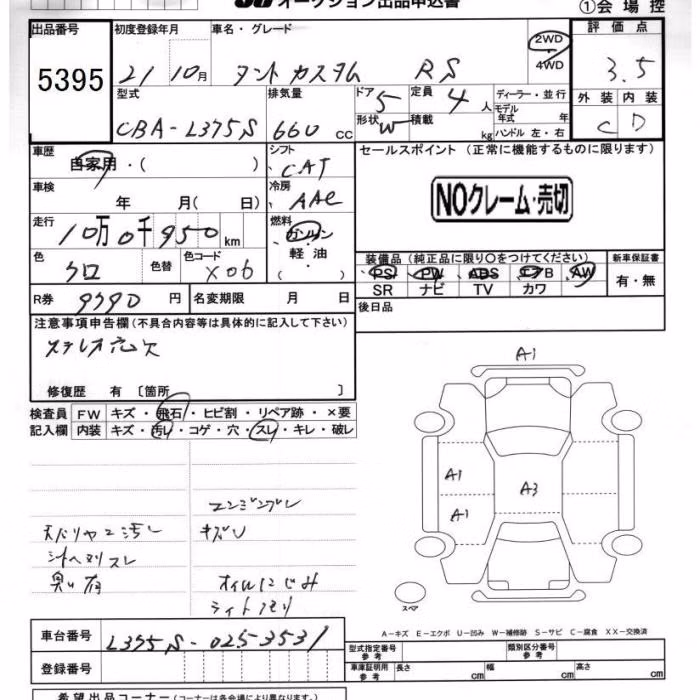 オークション出品申込書 ①会場控
出品番号 初度登録年月 車名・グレード 2WD 評価点
5395 21 10月 タントカスタム RS 4WD 3.5
型式 排気量 ドア 5 定員 4人 ディーラー・並行 外装 内装
CBA-L375S 660cc 形状 W 積載 kg モデル年式 年 C D
ハンドル 左・右
車歴 自家用・( ) シフト CAT セールスポイント (正常に機能するものに限ります)
車検 年 月( 日) 冷房 AAC NOクレーム・売切
走行 10万0千950km 燃料 ガソリン
軽油
・( )
色 クロ 色替 色コード X06 装備品 (純正品に限り○をつけてください) 新車保証書
PS PW ABS エアB AW 有・無
SR ナビ TV カワ
R券 9790円 名変期限 月 日 後日品
注意事項申告欄(不具合内容等は具体的に記入して下さい)
ステレオ穴欠
修復歴 有〔箇所 〕
検査員 FW キズ・飛石・ヒビ割・リペア跡・×要
記入欄 内装 キズ・汚れ・コゲ・穴・スレ・キレ・破レ
A1
A1 A3
A1
エンジンブレ
天バリヤニ汚レ キズU
シートヘタリスレ
臭い有 オイルにじみ
ライトクモリ
スペア
A-キズ E-エクボ U-凹み W-補修跡 S-サビ C-腐食 XX-交換済
車台番号 L375S-0253531 型式指定番号 参考 類別区分番号 参考
登録番号 車庫証明用 参考 長さ cm 幅 cm 高さ cm
希望出品コーナー(コーナーは各会場により異なります。)